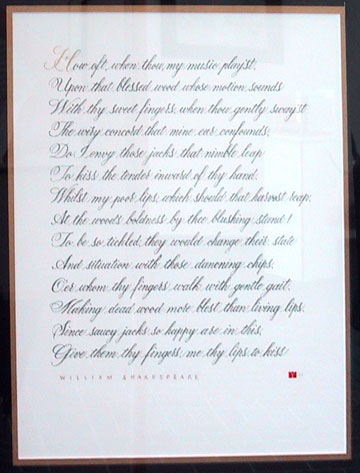 How oft, when thou, my music play'st,
Upon that blessed wood whose motion sounds
With thy sweet fingers, when thou gently sway'st
The wiry concord that mine ear confounds,
Do I envy those jacks that nimble leap
To kiss the tender inward of thy hand,
Whilst my poor lips, which should that harvest reap,
At the wood's boldness by thee blushing stand!
To be so tickled, they would change their state
And situation with those dancing chips,
O'er whom thy fingers walk with gentle gait,
Making dead wood more blest than living lips.
Since saucy jacks so happy are in this,
Give them thy fingers, me thy lips to kiss
WILLIAM SHAKESPEARE